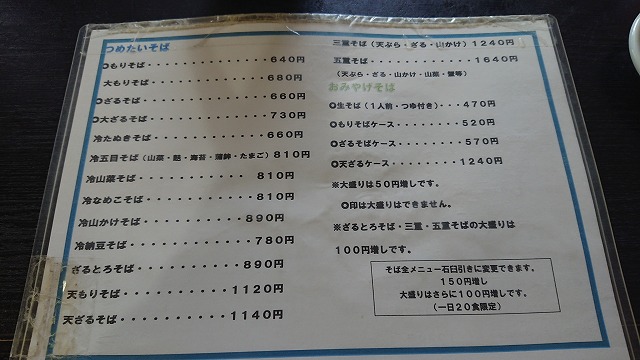 つめたいそば
○もりそば・・・・・・・・・・・・・・・640円
大もりそば・・・・・・・・・・・・・・680円
○ざるそば・・・・・・・・・・・・・・660円
○大ざるそば・・・・・・・・・・・・・730円
冷たぬきそば・・・・・・・・・・・・660円
冷五目そば(山菜・麩・海苔・蒲鉾・たまご)810円
冷山菜そば・・・・・・・・・・・・810円
冷なめこそば・・・・・・・・・・・810円
冷山かけそば・・・・・・・・・・890円
冷納豆そば・・・・・・・・・・・780円
ざるとろそば・・・・・・・・・・890円
天もりそば・・・・・・・・・・・1120円
天ざるそば・・・・・・・・・・・1140円
三重そば(天ぷら・ざる・山かけ)1240円
五重そば・・・・・・・・・・・・1640円
(天ぷら・ざる・山かけ・山菜・蟹等)
おみやげそば
○生そば(1人前・つゆ付き)・・・470円
○もりそばケース・・・・・・・・520円
○ざるそばケース・・・・・・・・570円
○天ざるケース・・・・・・・・・1240円
※大盛りは50円増しです。
○印は大盛りはできません。
※ざるとろそば・三重・五重そばの大盛りは
100円増しです。
そば全メニュー石臼引きに変更できます。
150円増し
大盛りはさらに100円増しです。
(一日20食限定)